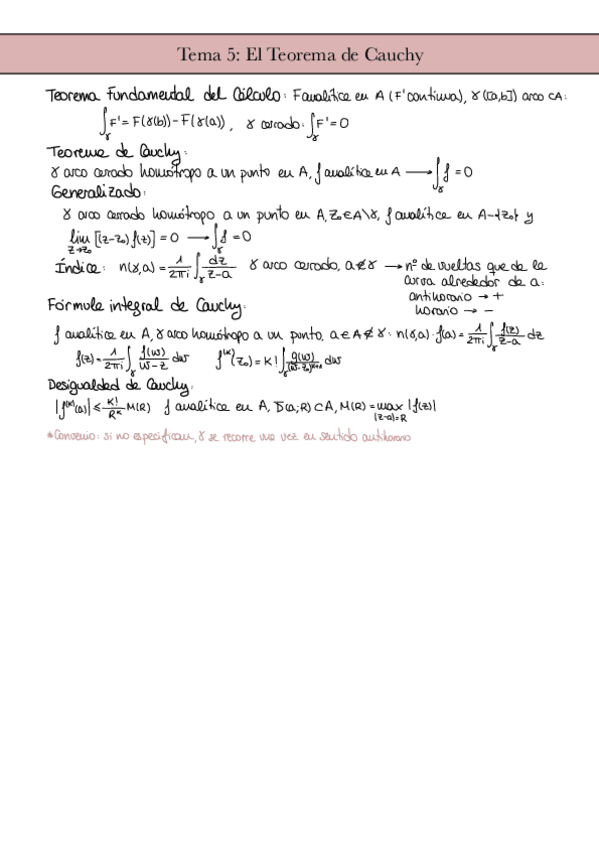 Tema 5: El Teorema de Cauchy
Teorema Fundamental del Cálculo: F analítica en A (F' continua), γ([a,b]) arco ⊂A:
∫_γ F' = F(γ(b)) - F(γ(a)), γ cerrado: ∫_γ F' = 0
Teorema de Cauchy:
γ arco cerrado homótropo a un punto en A, f analítica en A → ∫_γ f = 0
Generalizado:
γ arco cerrado homótropo a un punto en A, z₀∈A\γ, f analítica en A-{z₀} y
lim_{z→z₀} [(z-z₀) f(z)] = 0 → ∫_γ f = 0
Índice: n(γ,a) = 1/2πi ∫_γ dz/z-a γ arco cerrado, a∉γ → nº de vueltas que da la
curva alrededor de a:
antihorario → +
horario → -
Fórmula integral de Cauchy:
f analítica en A, γ arco homótropo a un punto, a∈A∉γ: n(γ,a)·f(a) = 1/2πi ∫_γ f(z)/z-a dz
f(z) = 1/2πi ∫_γ f(w)/w-z dw f^(k)(z₀) = k! ∫_γ g(w)/(w-z₀)^k+1 dw
Desigualdad de Cauchy:
|f^(k)(a)| ≤ k!/R^k M(R) f analítica en A, D̄(a;R) ⊂ A, M(R) = max_{|z-a|=R} |f(z)|
*Convenio: si no especifican, γ se recorre una vez en sentido antihorario